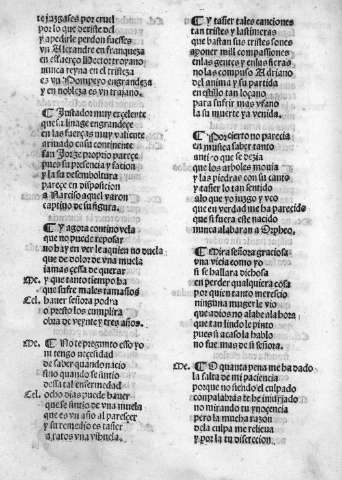 te juzgases por cruel
por lo que heziste del
y a pedirle perdon fuesses
es vn Alexandre en franqueza
en esfuerço Hector troyano
nunca reyna en el tristeza
es vn Pompeyo en grandeza
y en nobleza es vn trajano.
¶ Justador muy excelente
que su linage engrandece
en las fuerças muy valiente
armado casi continente
San Jorge proprio parece
pues su presencia y fation
y la su desemboltura
pareçe en disposicion
a Narciso aquel varon
captiuo de su figura.
¶ Y agora contino vela
que no puede reposar
no hay en ver le a quien no duela
que de dolor de vna muela
jamas cesa de quexar
Me. y que tanto tiempo ha
que sufre males tamaños
Cel. hauer señora podra
o presto los cumplira
obra de veynte y tres años.
Me. ¶ No te pregunto esso yo
ni tengo necesidad
de saber quando nacio
sino quando se sintio
desta tal enfermedad
Cel. ocho dias puede hauer
que se sintio de vna muela
que es vn año al pareçer
y su remedio es tañer
a ratos vna vihuela.
¶ Y tañer tales canciones
tan tristes y lastimeras
que bastan sus tristes sones
a poner mill compassiones
en las gentes y en las fieras
no las compuso Adriano
del anima y su partida
en estilo tan loçano
para sufrir mas vfano
la su muerte ya venida.
¶ Por cierto no parecia
en musica saber tanto
anfio que se dezia
que los arboles mouia
y las piedras con su canto
y tañer lo tan sentido
alo que yo juzgo y veo
que en verdad me ha parecido
que si fuera este nacido
nunca alabaran a Orpheo.
¶ Mira señora graciosa
vna vieja como yo
si se hallara dichosa
en perder qualquiera cosa
por quien tanto merescio
ninguna muger le vio
que a dios no alabe a la hora
que tan lindo le pinto
pues si acaso la hablo
no fue mas de si señora.
Me. ¶ O quanta pena me ha dado
la falta de mi paciencia
porque no siendo el culpado
con palabras te he injuriado
no mirando tu ynocencia
pero la mucha razon
dela culpa me relieua
y por la tu discrecion.